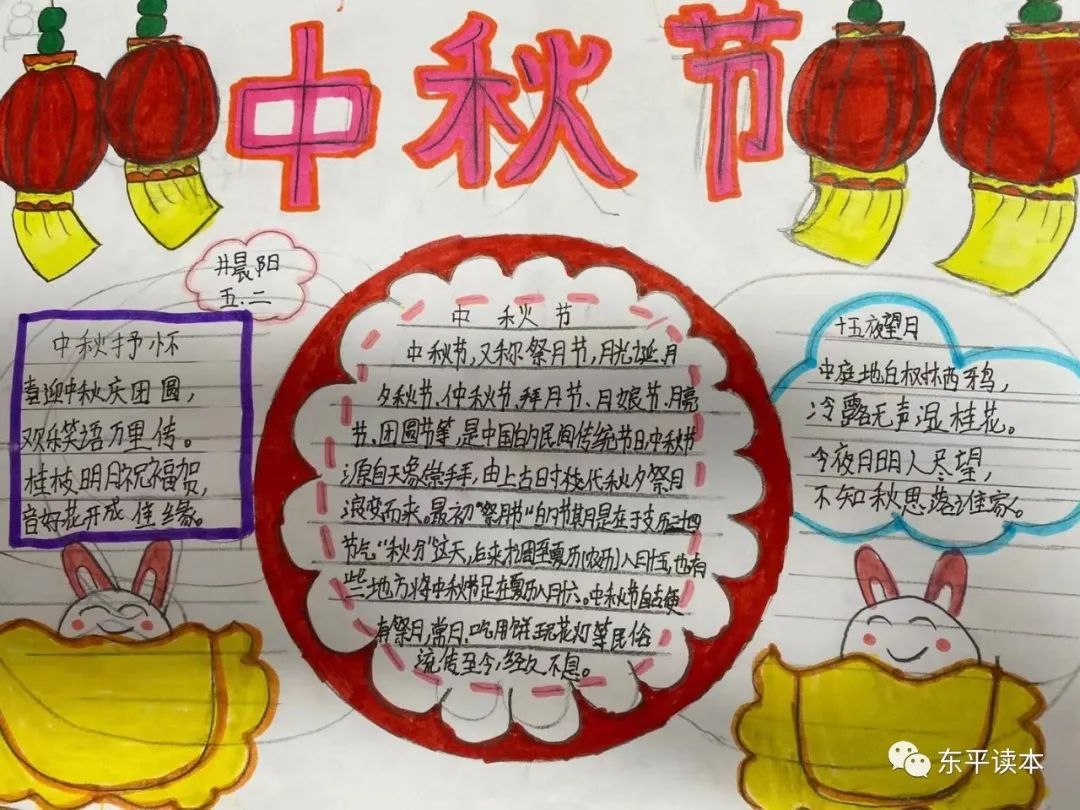 中秋节
井晨阳
五.二
中秋抒怀
喜迎中秋庆团圆，
欢乐笑语万里传。
桂枝明月祝福贺，
音好花开成佳缘。
中秋节
中秋节，又称祭月节，月光诞、月
夕、秋节、仲秋节、拜月节、月娘节、月亮
节、团圆节等，是中国的民间传统节日。中秋节
源自天象崇拜，由上古时代秋夕祭月
演变而来。最初“祭月节”的节期是在干支历二十四
节气“秋分”这天，后来才调至夏历（农历）八月十五，也有
些地方将中秋节定在夏历八月十六。中秋节自古便
有祭月，赏月、吃月饼、玩花灯等民俗
流传至今，经久不息。
十五夜望月
中庭地白树栖鸦，
冷露无声湿桂花。
今夜月明人尽望，
不知秋思落谁家。
东平读本